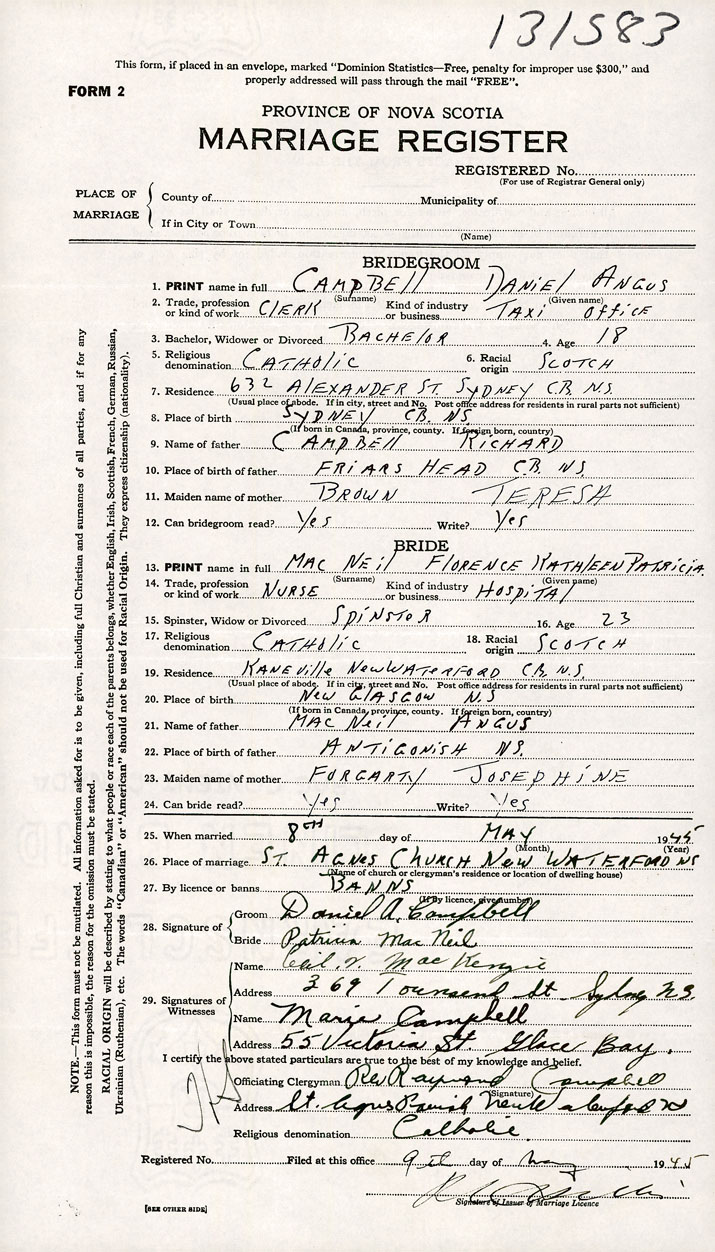 131583
This form, if placed in an envelope, marked "Dominion Statistics—Free, penalty for improper use $300," and
properly addressed will pass through the mail "FREE".
FORM 2
PROVINCE OF NOVA SCOTIA
MARRIAGE REGISTER
REGISTERED No.
(For use of Registrar General only)
PLACE OF MARRIAGE
County of Municipality of
If in City or Town
(Name)
BRIDEGROOM
1. PRINT name in full CAMPBEll DANiEl ANGUS
(Surname) (Given name)
2. Trade, profession or kind of work CLERK Kind of industry or business TAXi OffiCE
3. Bachelor, Widower or Divorced BACHELOR 4. Age 18
5. Religious denomination CATHOLIC 6. Racial origin SCOTCH
7. Residence 632 ALEXANDER ST. SYDNEY CB. N.S.
(Usual place of abode. If in city, street and No. Post office address for residents in rural parts not sufficient)
8. Place of birth SYDNEY CB. NS.
(If born in Canada, province, county. If foreign born, country)
9. Name of father CAMPBEll RICHARD
10. Place of birth of father FRIARS HEAD CB. NS
11. Maiden name of mother BROWN TERESA
12. Can bridegroom read? Yes Write? Yes
BRIDE
13. PRINT name in full MAC NEil FLORENCE KATHLEEN PATRICIA.
(Surname) (Given name)
14. Trade, profession or kind of work NURSE Kind of industry or business HOSPITAl
15. Spinster, Widow or Divorced SPINSTOR 16. Age 23
17. Religious denomination CATHOLIC 18. Racial origin SCOTCH
19. Residence KANEVille NEW WATERFORD CB. N.S.
(Usual place of abode. If in city, street and No. Post office address for residents in rural parts not sufficient)
20. Place of birth NEW GLASGOW N.S
(If born in Canada, province, county. If foreign born, country)
21. Name of father MAC NEil ANGUS
22. Place of birth of father ANTIGONISH NS.
23. Maiden name of mother FORGARTY JOSEPHINE
24. Can bride read? Yes Write? Yes
25. When married 8TH day of MAY 1945
(Month) (Year)
26. Place of marriage ST. AGNES CHURCH NEW WATERFORD NS
(Name of church or clergyman's residence or location of dwelling house)
27. By licence or banns BANNS
(If By licence, give number)
28. Signature of
Groom Daniel A. Campbell
Bride Patricia Mac Neil
29. Signatures of Witnesses
Name Mac Kenzie
Address 369 Townsend St Sydney N.S.
Name Marie Campbell
Address 55 Victoria St Glace Bay.
I certify the above stated particulars are true to the best of my knowledge and belief.
Officiating Clergyman Rev Raymond Campbell
(Signature)
Address St. Agnes Parish New Waterford NS
Religious denomination Catholic.
Registered No. Filed at this office 9th day of May 1945
Signature of Issuer of Marriage Licence
[SEE OTHER SIDE]
NOTE.—This form must not be mutilated. All information asked for is to be given, including full Christian and surnames of all parties, and if for any
reason this is impossible, the reason for the omission must be stated.
RACIAL ORIGIN will be described by stating to what people or race each of the parents belongs, whether English, Irish, Scottish, French, German, Russian,
Ukrainian (Ruthenian), etc. The words "Canadian" or "American" should not be used for Racial Origin. They express citizenship (nationality).